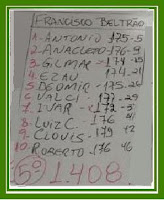 FRANCISCO BELTRÃO
1- ANTONIO 175-5
2- ANACLETO 176-9
3- GILMAR - 174-19
4- EZAU 174-21
5- DEOMIR - 175-26
6- VALCI - 177-29
7- IJAR - 172-3
8- LUIZ C - 176
9- CLOVIS - 179 42
10- ROBERTO 176 46
5º) 1408